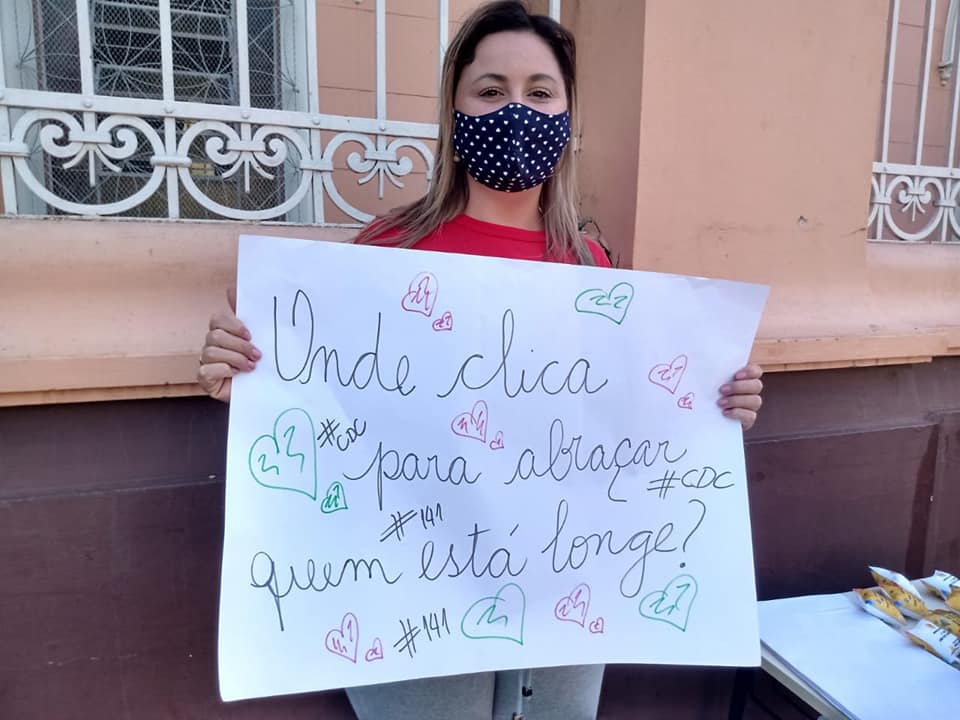 Onde clica
#CDC
para abraçar
#CDC
#141
quem está longe?
#141